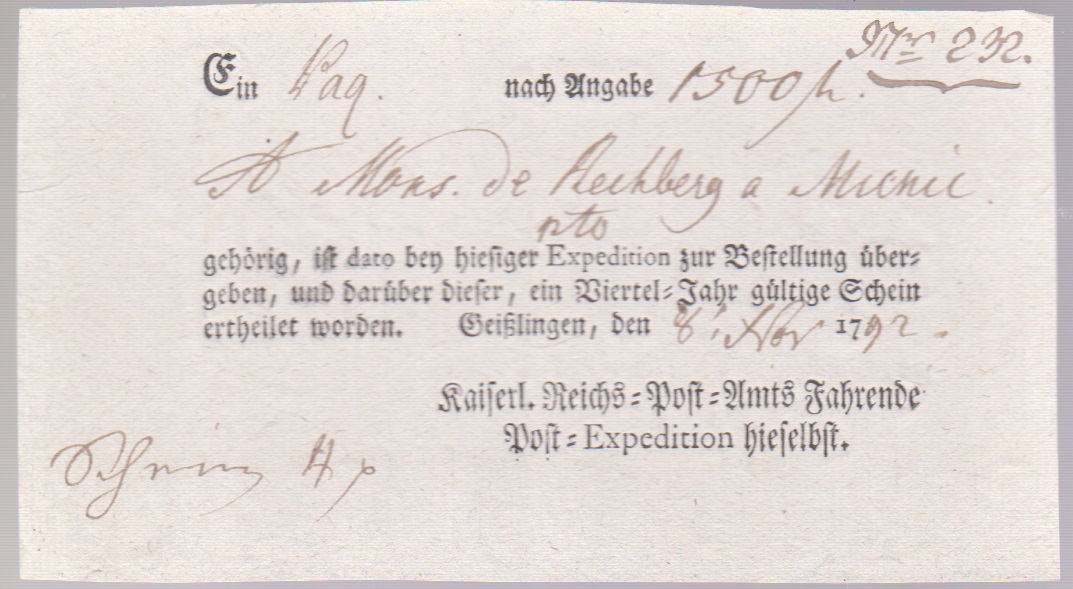 Nr 232.
Ein Paq. nach Angabe 1500 fl.
A Mons. de Rechberg a Munic
pto
gehörig, ist dato bey hiesiger Expedition zur Bestellung über-
geben, und darüber dieser, ein Viertel-Jahr gültige Schein
ertheilet worden. Geißlingen, den 8. Nov 1792.
Kaiserl. Reichs-Post-Amts Fahrende
Post-Expedition hieselbst.
Schein 4 x